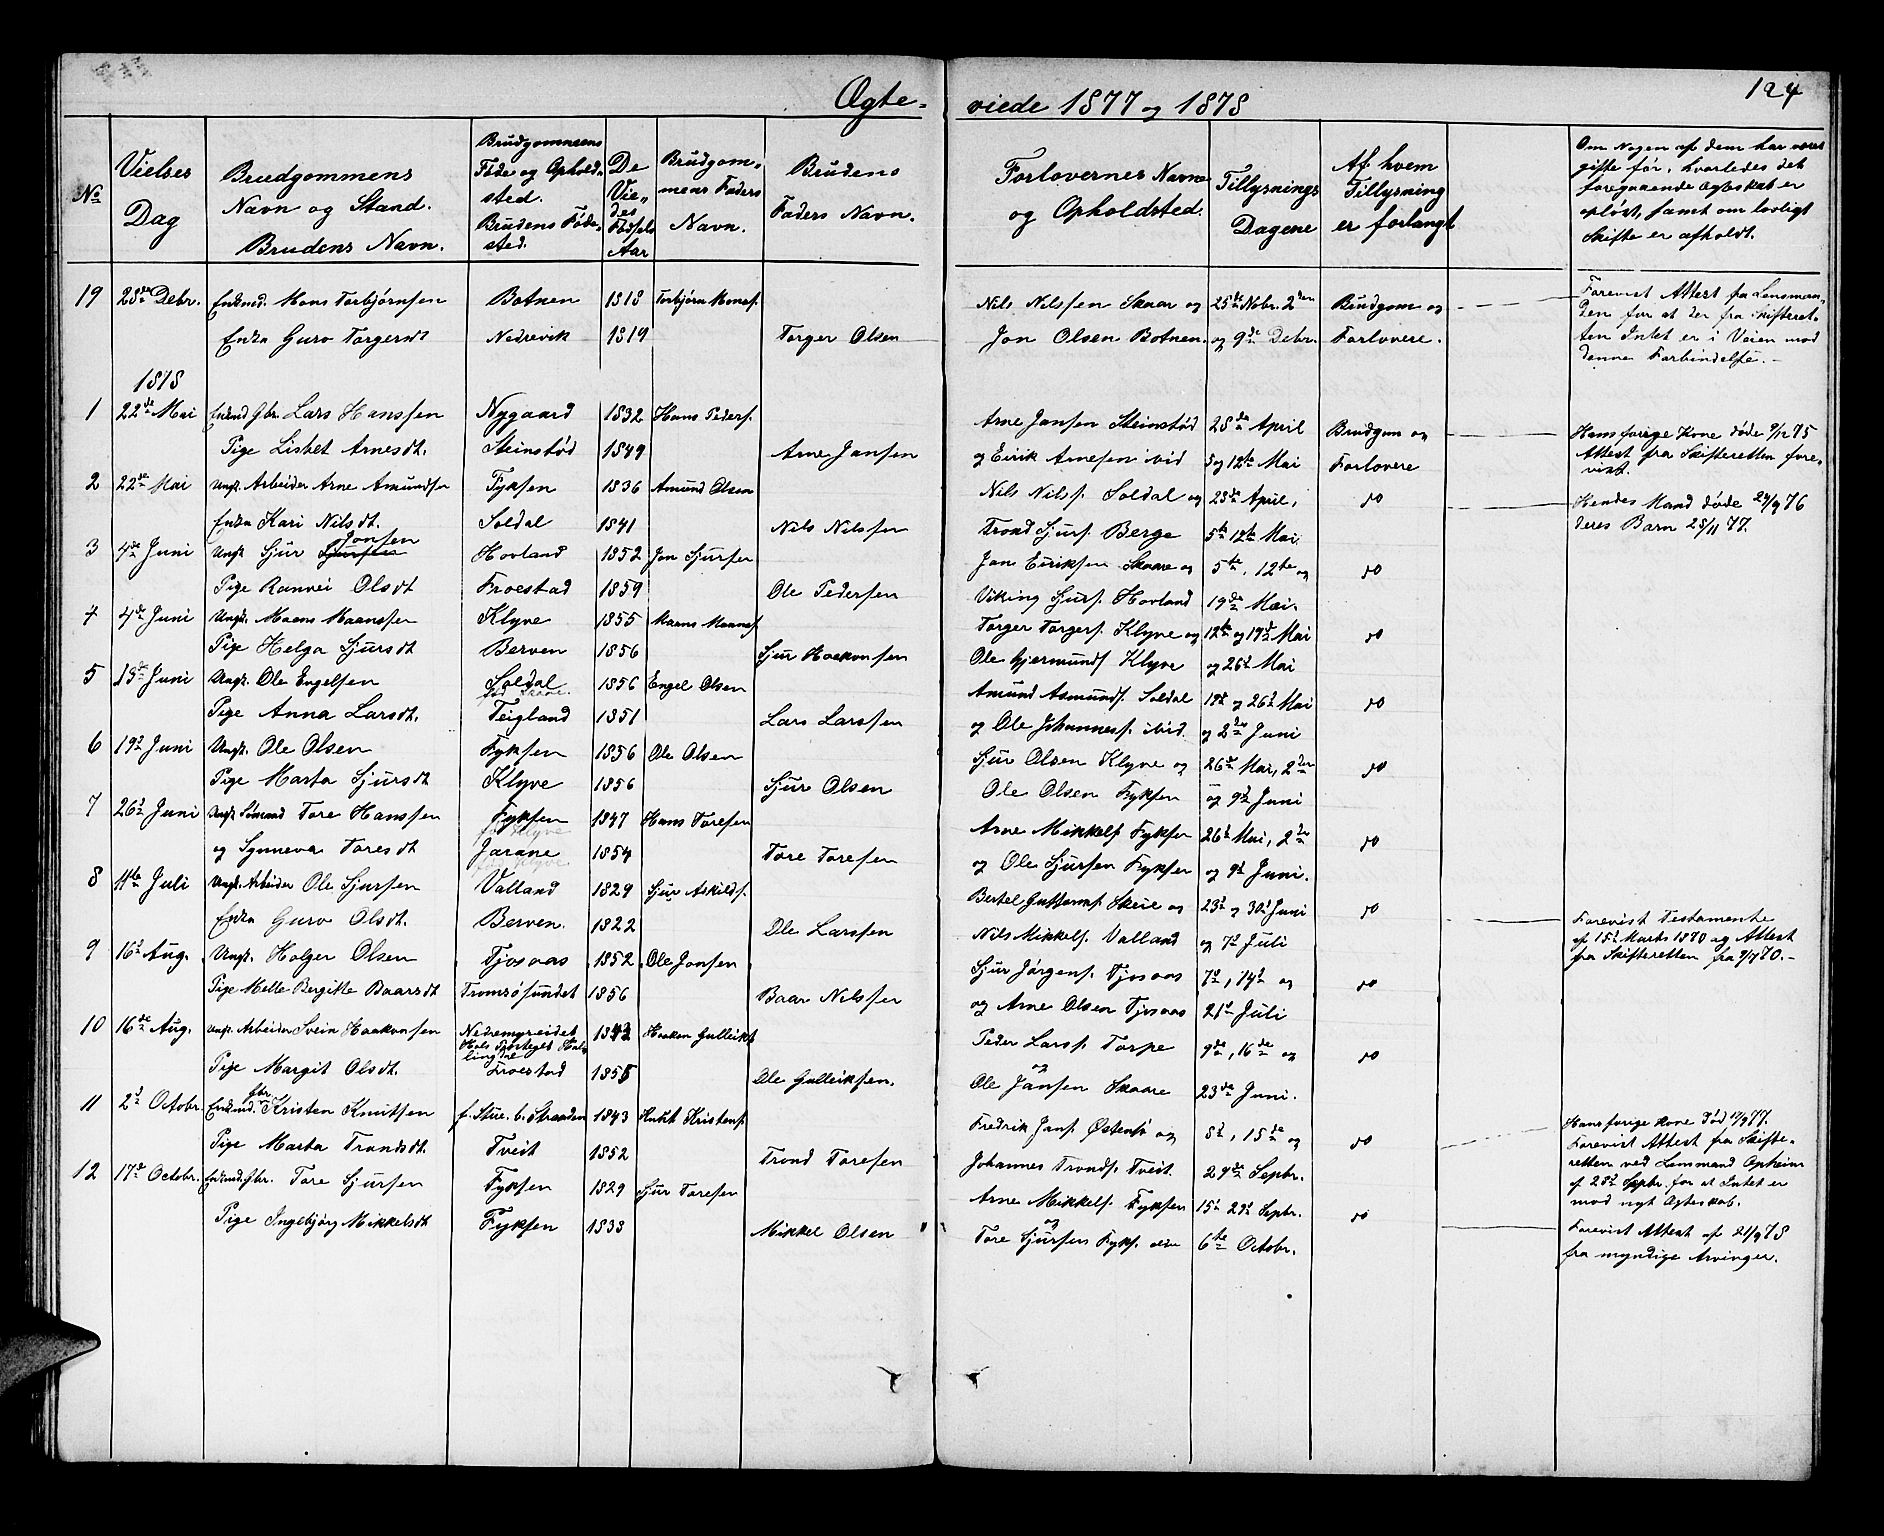 Ægte-
viede 1877 og 1878
124
No
Vielses
Dag
Brudgommens
Navn og Stand.
Brudens Navn.
Brudgommens
Føde og Opholds-
sted.
Brudens Føde-
sted.
De
Vie-
des
Fødsels
Aar
Brudgom-
mens Faders
Navn.
Brudens
Faders Navn.
Forlovernes Navne
og Opholdsted.
Tillysnings
Dagene
Af hvem
Tillysning
er forlangt
Om Nogen af dem har været
gifte før, hvorledes det
foregaaende Ægteskab er
opløst, samt om lovligt
Skifte er afholdt.
19 28de Debr. Enkmd. Hans Torbjørnsen Botnen 1818 Torbjørn Hansf. Nils Nilssen Skaar og 25de Nobr. 2den Brudgom og Forevist Attest fra Lensman-
den for at der fra Skifteret-
Enka Guro Torgersdt Nedrevik 1819 Torger Olsen Jon Olsen Botnen. og 9de Debr. Forlovere. ten Intet er i Veien mod
denne Forbindelse.-
1878
1 22de Mai Enkmd Gbr. Lars Hanssen Nygaard 1832 Hans Pedersf. Arne Jansen Steinstød 28de April Brudgom og Hans forrige Kone døde 9/12 75
Pige Lisbet Arnesdt. Steinstød 1849 Arne Jansen og Eirik Arnesen ibid 5 og 12te Mai Forlovere Attest fra Skifteretten fore-
vist.
2 22de Mai Ungk. Arbeider Arne Amundsen Fyksen 1836 Amund Olsen Nils Nilsf. Soldal og 28de April, do Hendes Mand døde 24/9 76
Enka Kari Nilsdt. Soldal 1841 Nils Nilssen Trond Sjursf. Berge 5te 12te Mai deres Barn 25/11 77.
Jonsen
3 4de Juni Ungk. Sjur Sjursen Hovland 1852 Jon Sjursen Jon Eiriksen Skaare og 5te, 12te og do
Pige Ranvei Olsdt Froestad 1859 Ole Pedersen Viking Sjursf. Hovland 19de Mai.
4 4de Juni Ungk. Maens Maanssen Klyve 1855 Maans Maansf. Torger Torgersf. Klyve og 12te og 19de Mai do
Pige Helga Sjursdt Berven 1856 Sjur Haakonsen Ole Gjermundsf. Klyve og 26de Mai
5 19de Juni Ungk. Ole Engelsen Soldal 1856 Engel Olsen Amund Asmundsf. Soldal 19de og 26de Mai do
Pige Anna Larsdt. Teigland 1851 Lars Larssen og Ole Johannesf. ibid. og 2den Juni
6 19de Juni Ungk. Ole Olsen Fyksen 1856 Ole Olsen Sjur Olsen Klyve og 26de Mai, 2den do
Pige Marta Sjursdt Klyve 1856 Sjur Olsen Ole Olsen Fyksen og 9de Juni
7 26de Juni Ungk. Sømand Tore Hanssen Fyksen 1847 Hans Toresen Arne Mikkelsf Fyksen 26de Mai, 2den do
og Synneva Toresdt Jarane 1854 Tore Toresen og Ole Sjursen Fyksen og 9de Juni.
8 11te Juli Ungk. Arbeider Ole Sjursen Valland 1829 Sjur Askildsf. Bertel Guttormsf. Skeie og 23de og 30de Juni do Forevist Testamente
Enka Guro Olsdt. Berven. 1822 Ole Larssen Nils Mikkelsf. Valland og 7de Juli af 15de Marts 1870 og Attest
fra Skifteretten fra 9/7 70.-
9 16de Aug. Ungk. Holger Olsen Tjosaas 1852 Ole Jonsen Sjur Jørgensf. Tjosaas 7de, 14de og do
Pige Melle Bergitte Baarsdt Tromsøsundet 1856 Baar Nilssen og Arne Olsen Tjosaas 21de Juli
10 16de Aug. Ungk. Arbeider Svein Haakonsen Nedremyreidet
Hols Præstegjeld Hal-
lingdal 1843 Haakon Gulleiksf. Peder Larsf. Torpe 9de, 16de og do
Pige Margit Olsdt. Froestad 1855 Ole Gulleiksen. og Ole Jansen Skaare 23de Juni.
11 2de Octobr. Enkmd. Gbr. Kristen Knutsen f. Stue. b. Straaden 1843 Knut Kristensf. Fredrik Jansf. Østensø og 8de, 15de og do Hans forrige Kone død 17/9 77.
Pige Marta Trondsdt. Tveit 1852 Trond Toresen Johannes Trondsf. Tveit. 29de Septbr. Forevist Attest fra Skifte-
retten ved Lensmand Opheim
af 28de Septbr. for at Intet er
mod nyt Ægteskab.
12 17de Octobr. Enkmd. Gbr. Tore Sjursen Fyksen 1829 Sjur Toresen Arne Mikkelsf. Fyksen 15de 29de Septbr. do
Pige Ingebjørg Mikkelsdt Fyksen 1833 Mikkel Olsen og Tore Sjursen Fyksf. 6te Octobr. Forevist Attest af 21/9 78
fra myndige Arvinger.